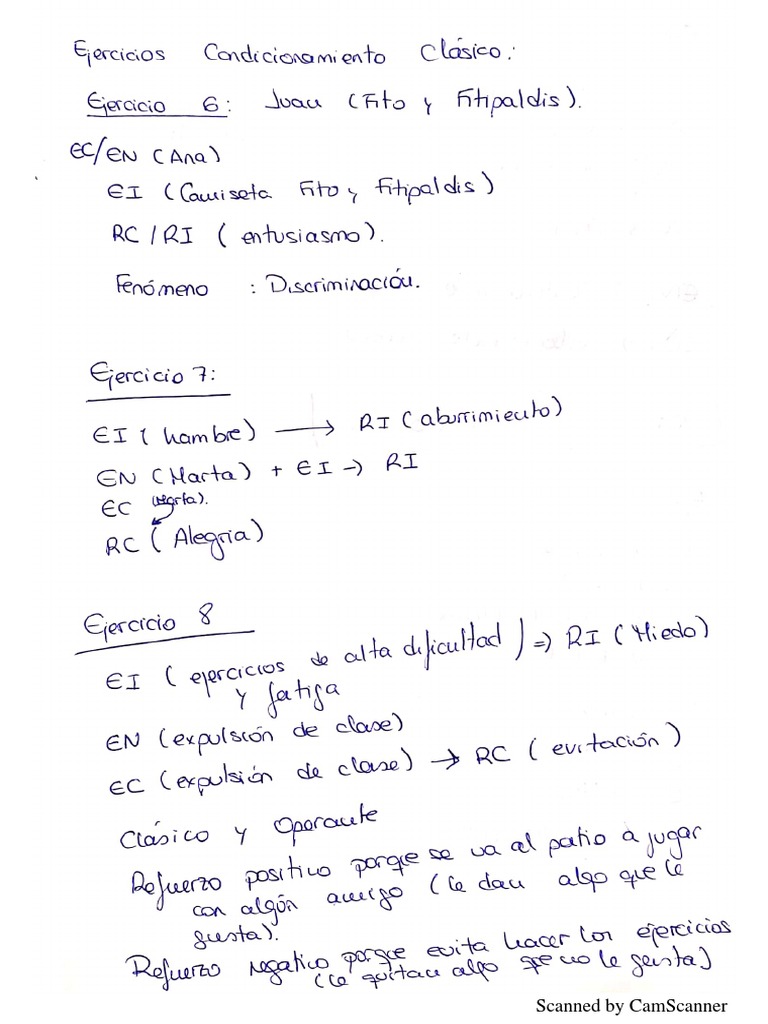 Ejercicios Condicionamiento Clásico:
Ejercicio 6: Juan (Fito y Fitipaldis).
EC/EN (Ana)
EI (Camiseta Fito y Fitipaldis)
RC/RI (entusiasmo).
Fenómeno : Discriminación.
Ejercicio 7:
EI (hambre) → RI (aburrimiento)
EN (Marta) + EI → RI
EC (Marta).
RC (Alegria)
Ejercicio 8
EI (ejercicios de alta dificultad) ⇒ RI (Miedo)
y fatiga
EN (expulsión de clase)
EC (expulsión de clase) → RC (evitación)
Clásico y Operante
Refuerzo positivo porque se va al patio a jugar
con algún amigo (le dan algo que le
gusta).
Refuerzo negativo porque evita hacer los ejercicios
(le quitan algo que no le gusta)
Scanned by CamScanner